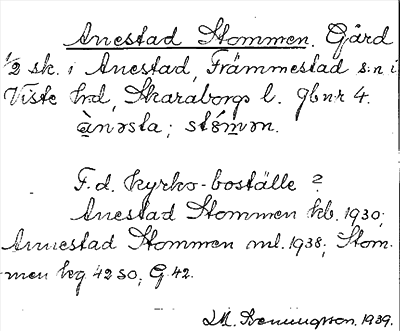 Anestad Stommen. Gård
1/2 sk. i Anestad, Främmestad s:n i
Viste hrd, Skaraborgs l. Gbnr 4.
ànəsta; stómən.
F.d. kyrko-boställe?
Anestad Stommen kb. 1930;
Annestad Stommen ml. 1938; Stom-
men hg 42 SO; G 42.
1939.